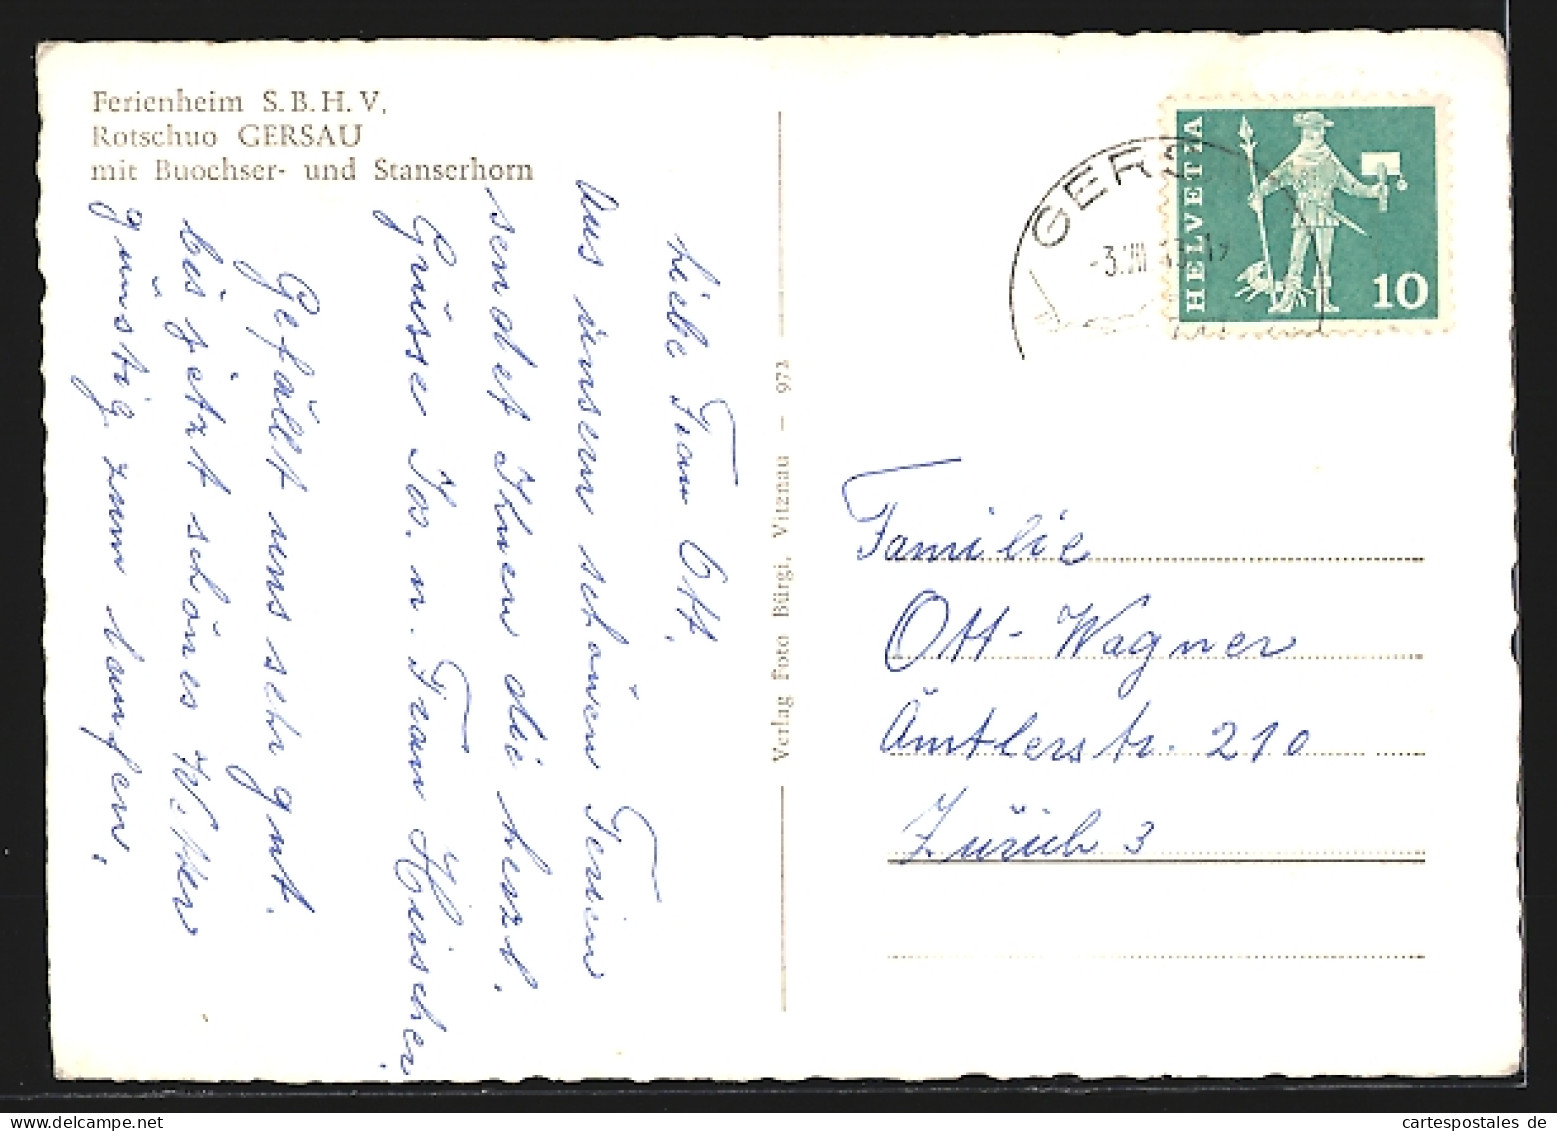 Ferienheim S.B.H.V.
Rotschuo GERSAU
mit Buochser- und Stanserhorn
Liebe Frau Ott,
Aus unsern schönen Ferien
sendet Ihnen die herzl.
Grüsse Fr. u. Frau
Gefällt uns sehr gut.
bis jetzt schönes Wetter
günstig zum laufen.
Verlag Foto Bürgi, Vitznau — 972
GERS
-3.VIII
HELVETIA
10
Familie
Ott-Wagner
Ämtlerstr. 210
Zürich 3
cartespostales de